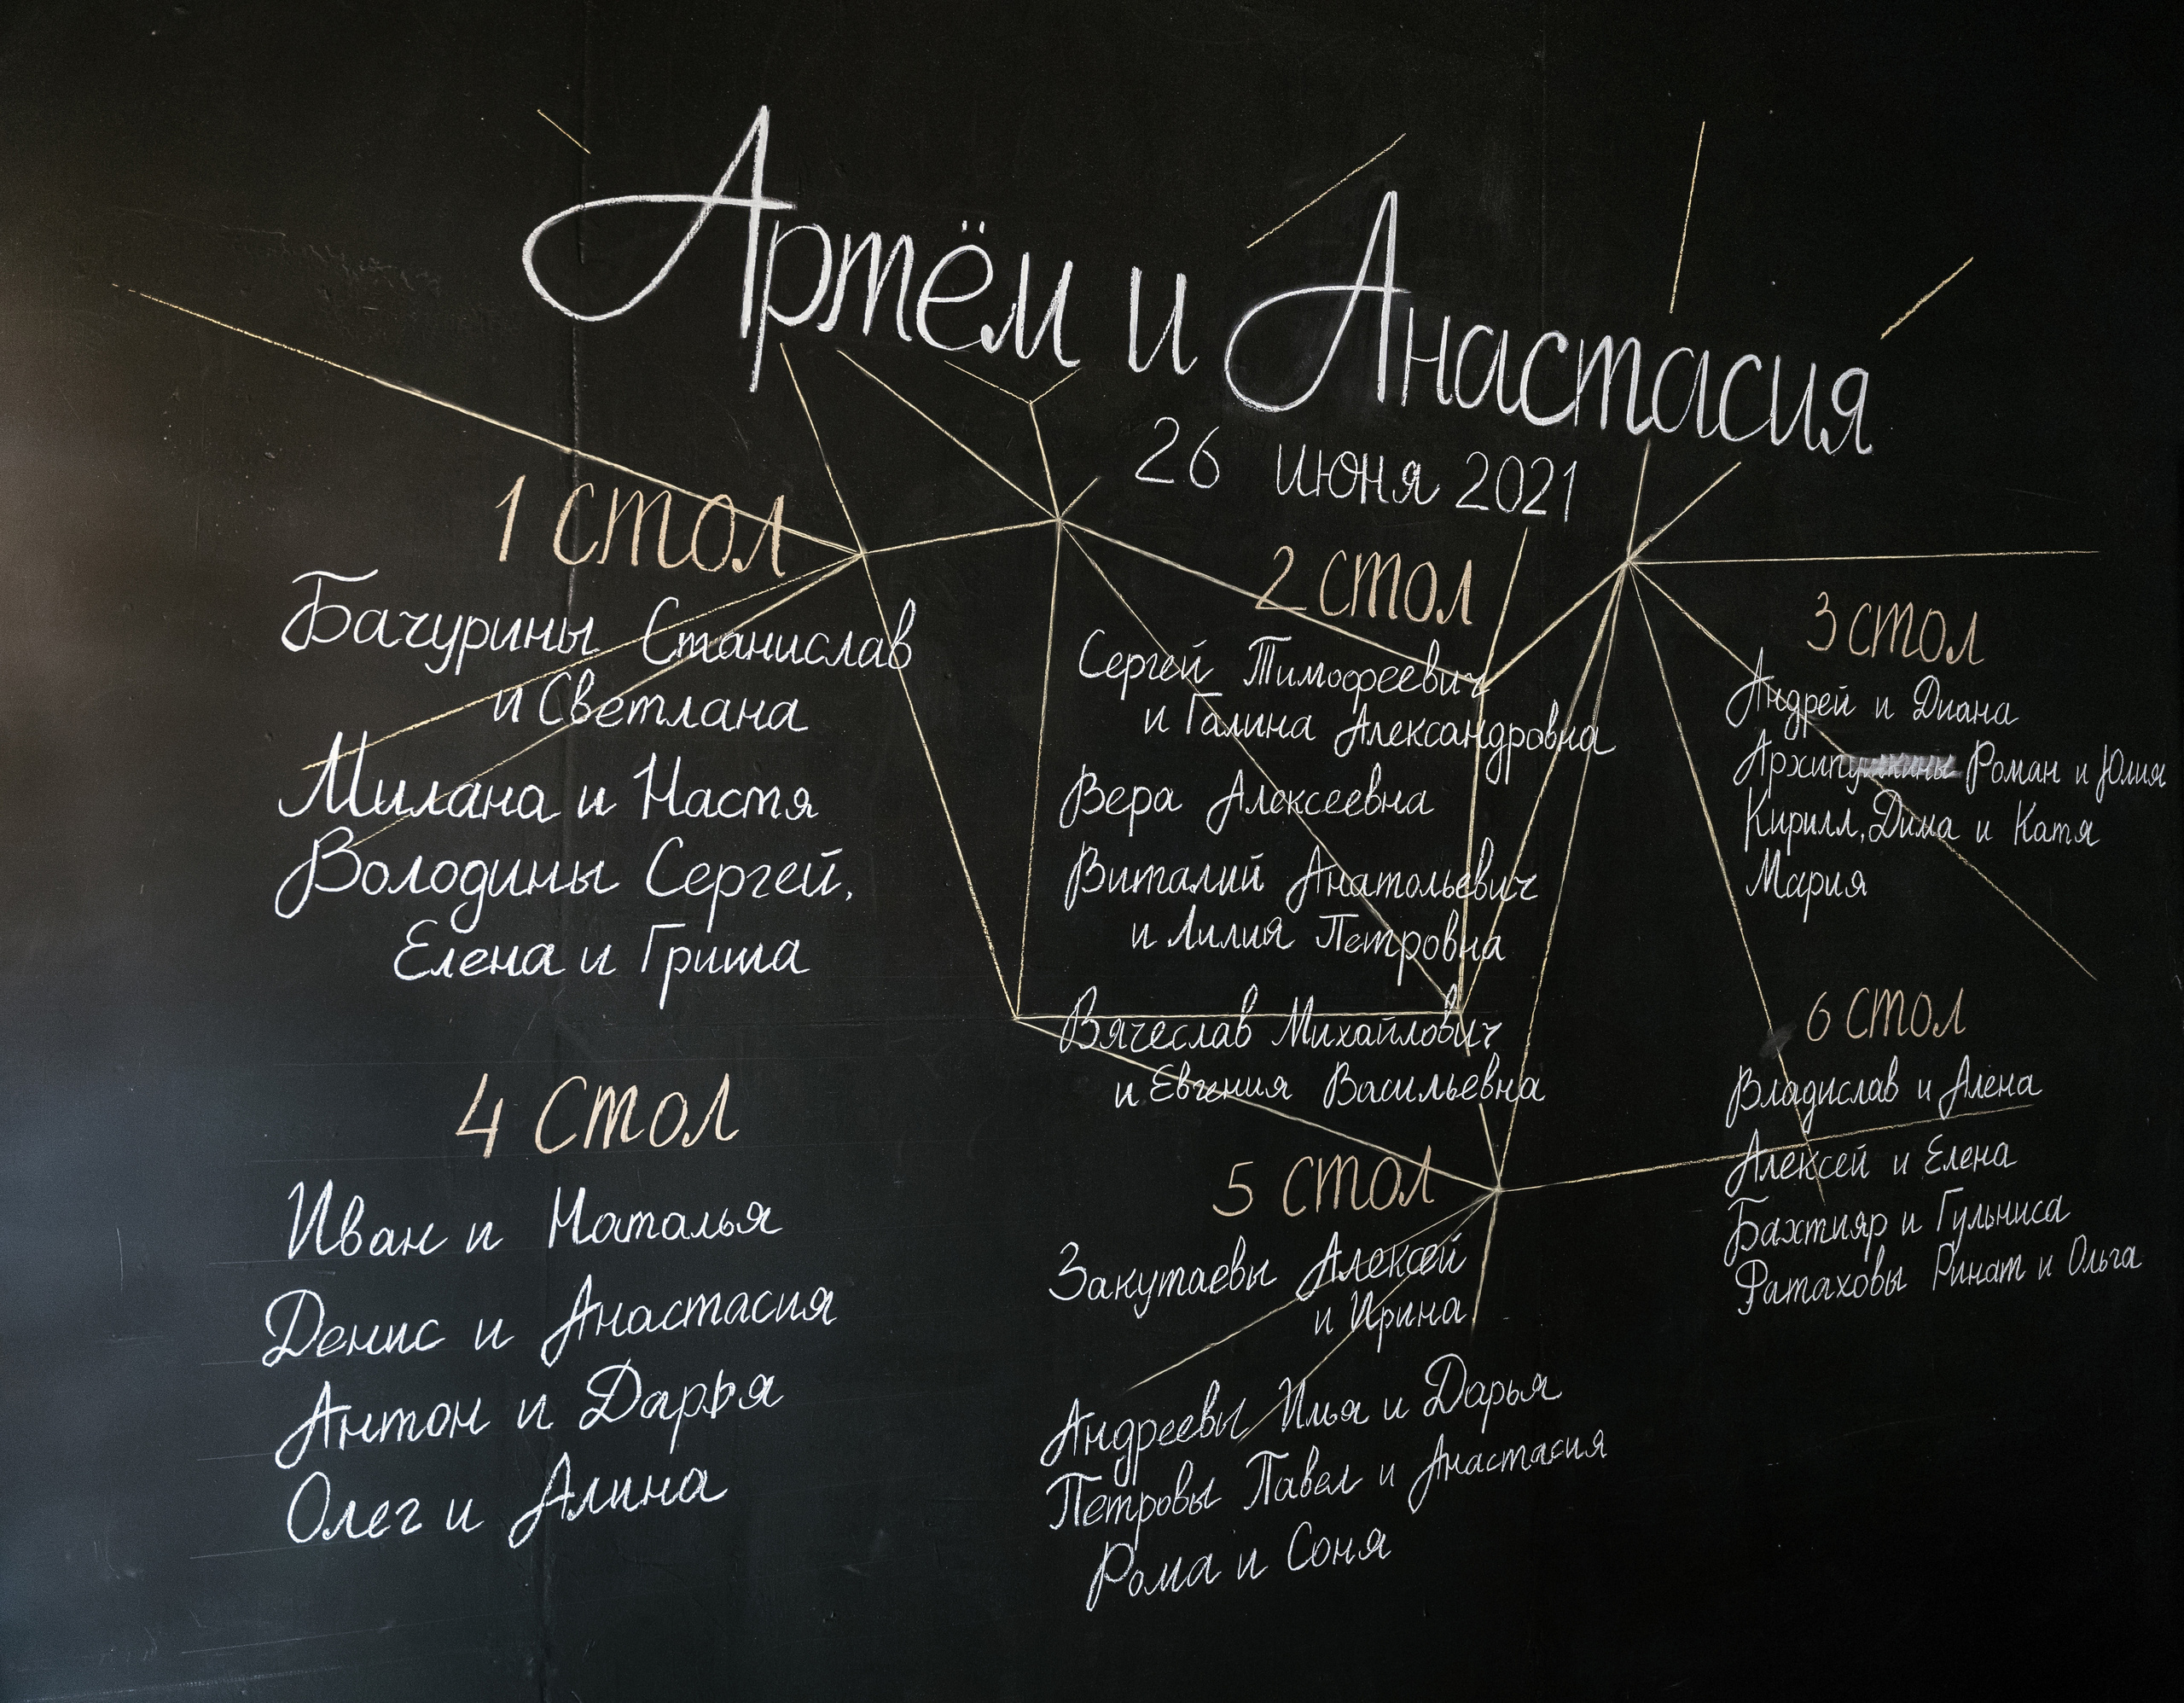 Артём и Анастасия
26 июня 2021
1 стол
Бачурины Станислав
и Светлана
Милана и Настя
Володины Сергей,
Елена и Гриша
2 стол
Сергей Тимофеевич
и Галина Александровна
Вера Алексеевна
Виталий Анатольевич
и Лилия Петровна
Вячеслав Михайлович
и Евгения Васильевна
3 стол
Андрей и Диана
Роман и Юлия
Кирилл, Дима и Катя
Мария
4 стол
Иван и Наталья
Денис и Анастасия
Антон и Дарья
Олег и Алина
5 стол
Закутаевы Алексей
и Ирина
Андреевы Илья и Дарья
Петровы Павел и Анастасия
Рома и Соня
6 стол
Владислав и Алена
Алексей и Елена
Бахтияр и Гульниса
Фатаховы Ринат и Ольга